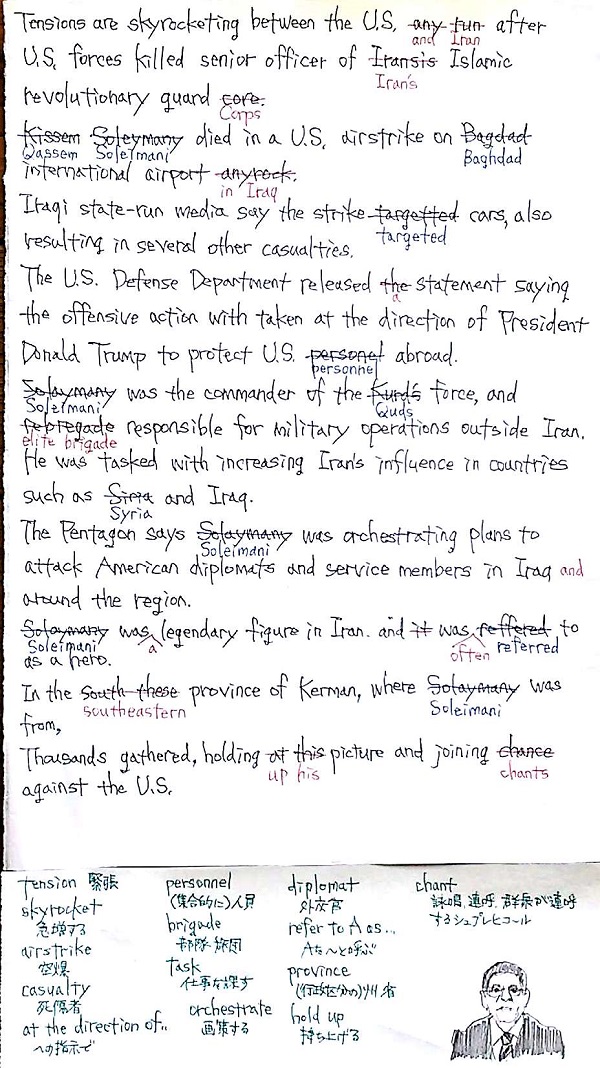 Tensions are skyrocketing between the U.S. any fun after
and Iran
U.S. forces killed senior officer of Iransis Islamic
Iran's
revolutionary guard core.
Corps
Kissem Soleymany died in a U.S. airstrike on Bagdad
Qassem Soleimani Baghdad
international airport anyrock.
in Iraq
Iraqi state-run media say the strike targetted cars, also
targeted
resulting in several other casualties.
The U.S. Defense Department released the statement saying
a
the offensive action with taken at the direction of President
Donald Trump to protect U.S. personel abroad.
personnel
Solaymany was the commander of the Kurd's force, and
Soleimani Quds
responsible for military operations outside Iran.
elite brigade
He was tasked with increasing Iran's influence in countries
such as Siria and Iraq.
Syria
The Pentagon says Solaymany was orchestrating plans to
Soleimani
attack American diplomats and service members in Iraq and
around the region.
Solaymany was legendary figure in Iran. and it was reffered to
Soleimani a often referred
as a hero.
In the south these province of Kerman, where Solaymany was
southeastern Soleimani
from,
Thousands gathered, holding at this picture and joining chance
up his chants
against the U.S.
tension 緊張
skyrocket
急増する
airstrike
空爆
casualty
死傷者
at the direction of..
への指示で
personnel
(集合的に)人員
brigade
部隊 旅団
task
仕事を課す
orchestrate
画策する
diplomat
外交官
refer to A as...
Aを〜と呼ぶ
province
(行政区分の)州 省
hold up
持ち上げる
chant
詠唱, 連呼, 群衆が連呼
するシュプレヒコール